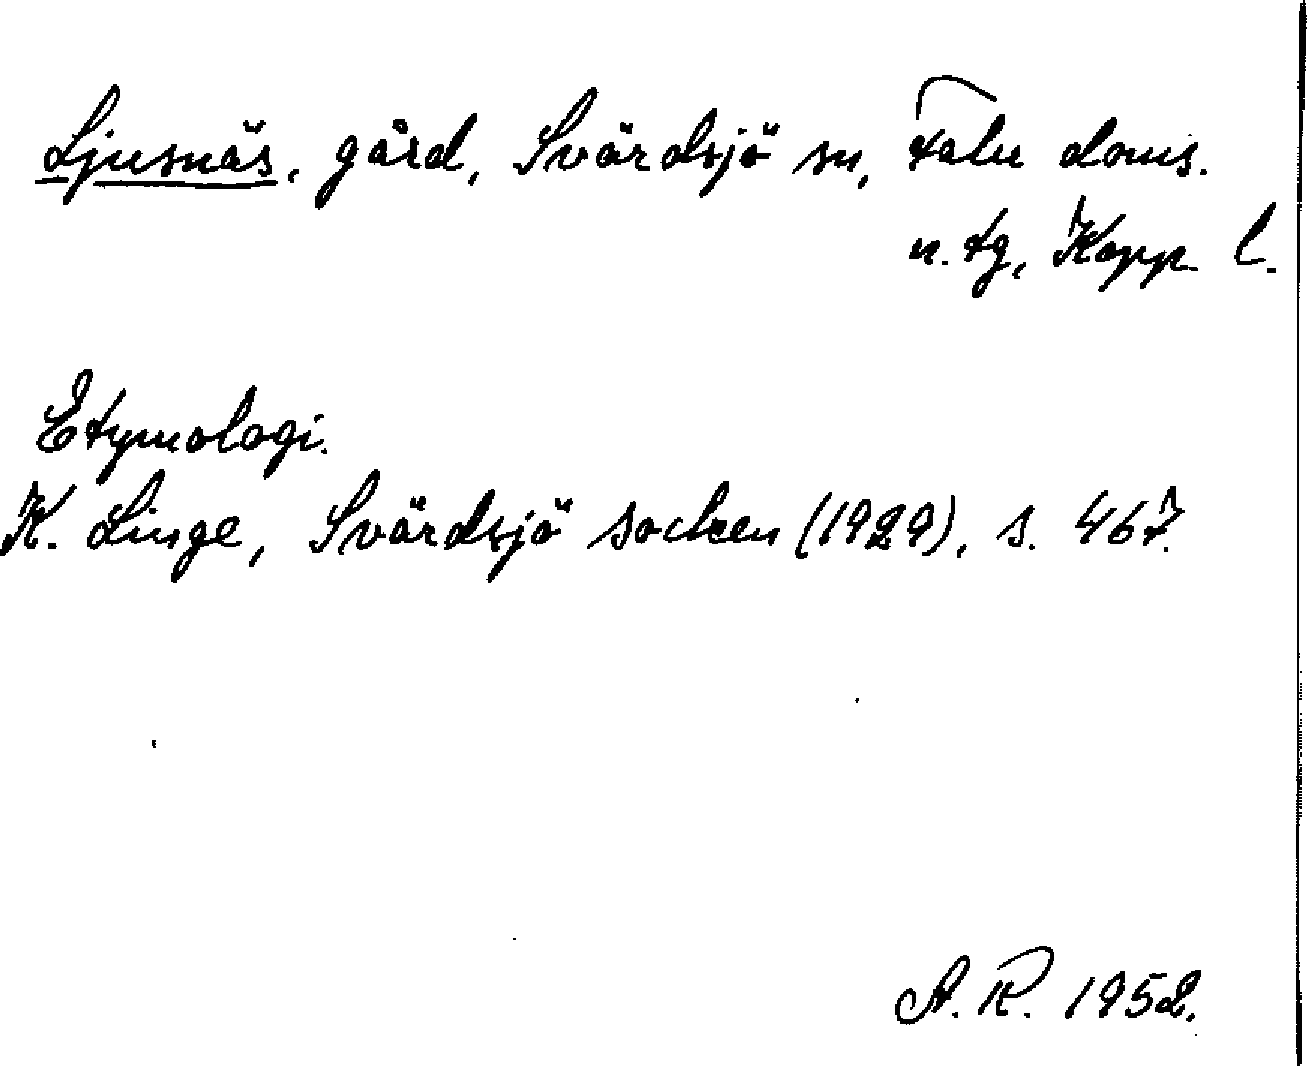 Ljusnäs, gård, Svärdsjö sn, Falu doms.
n. tg, Kopp. l.
Etymologi.
K. Linge, Svärdsjö socken (1929), s. 467.
A. R. 1952.